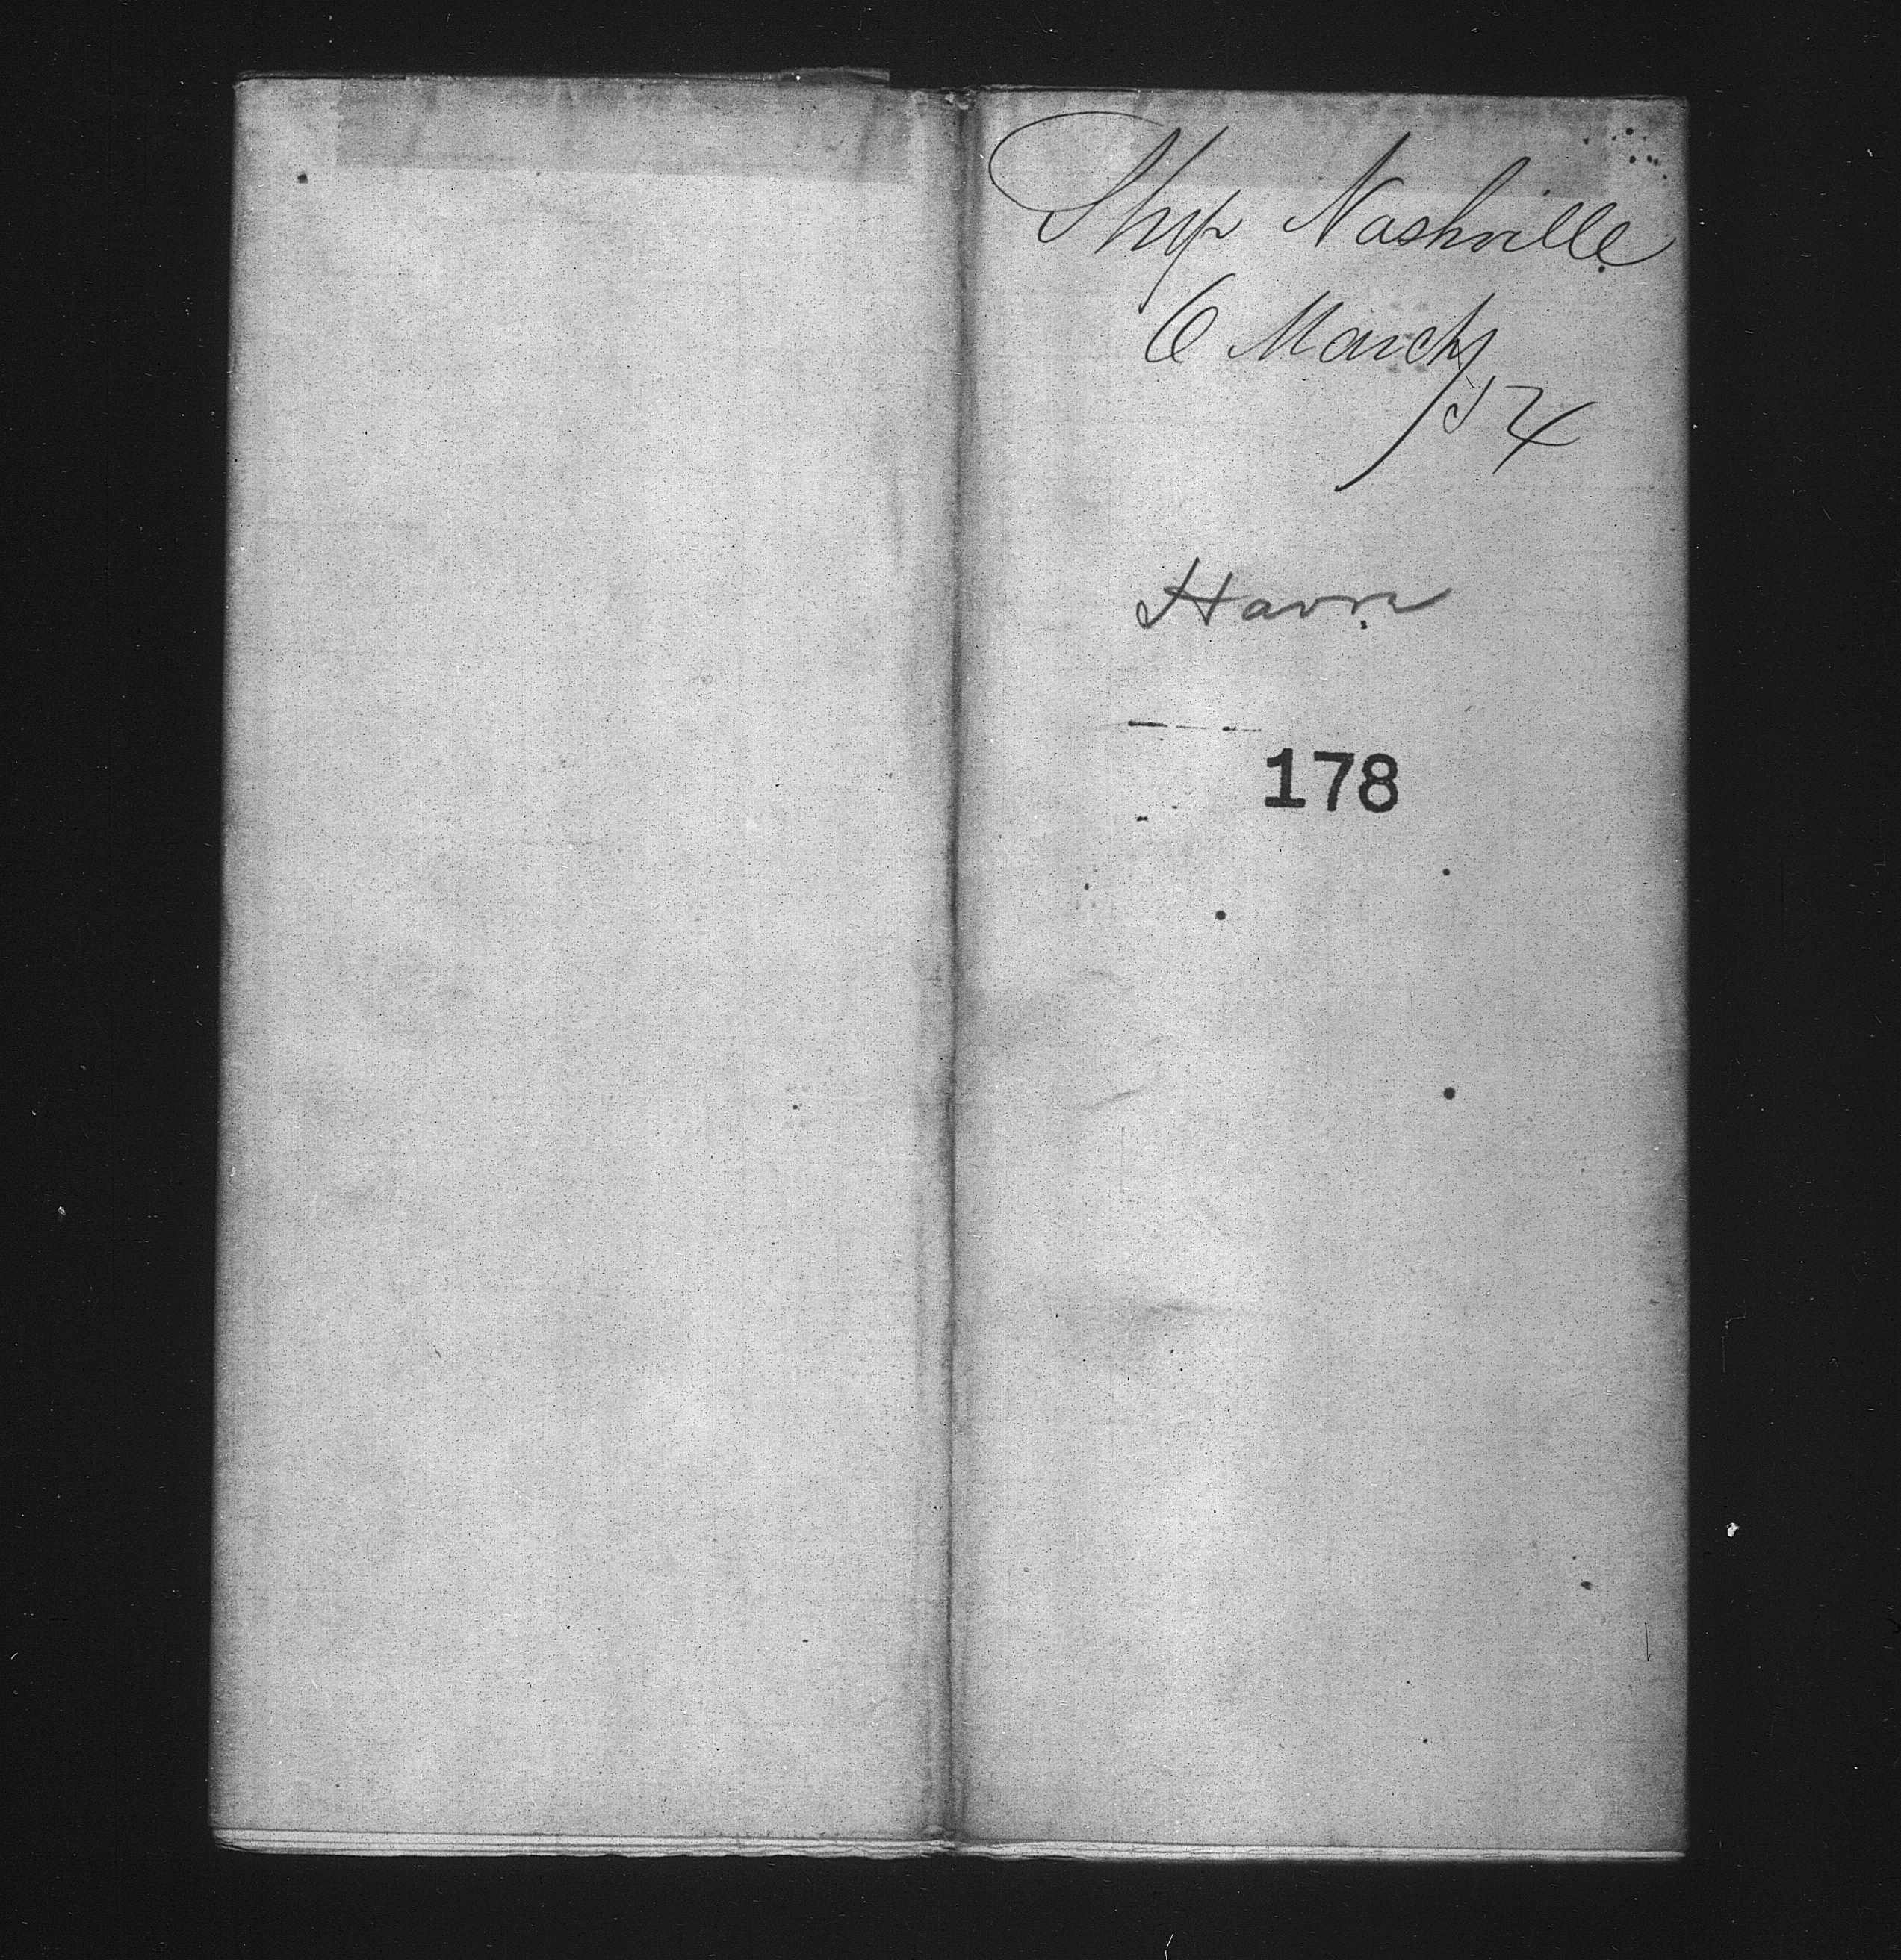 Ship Nashville
6 March
/54
Havre
178